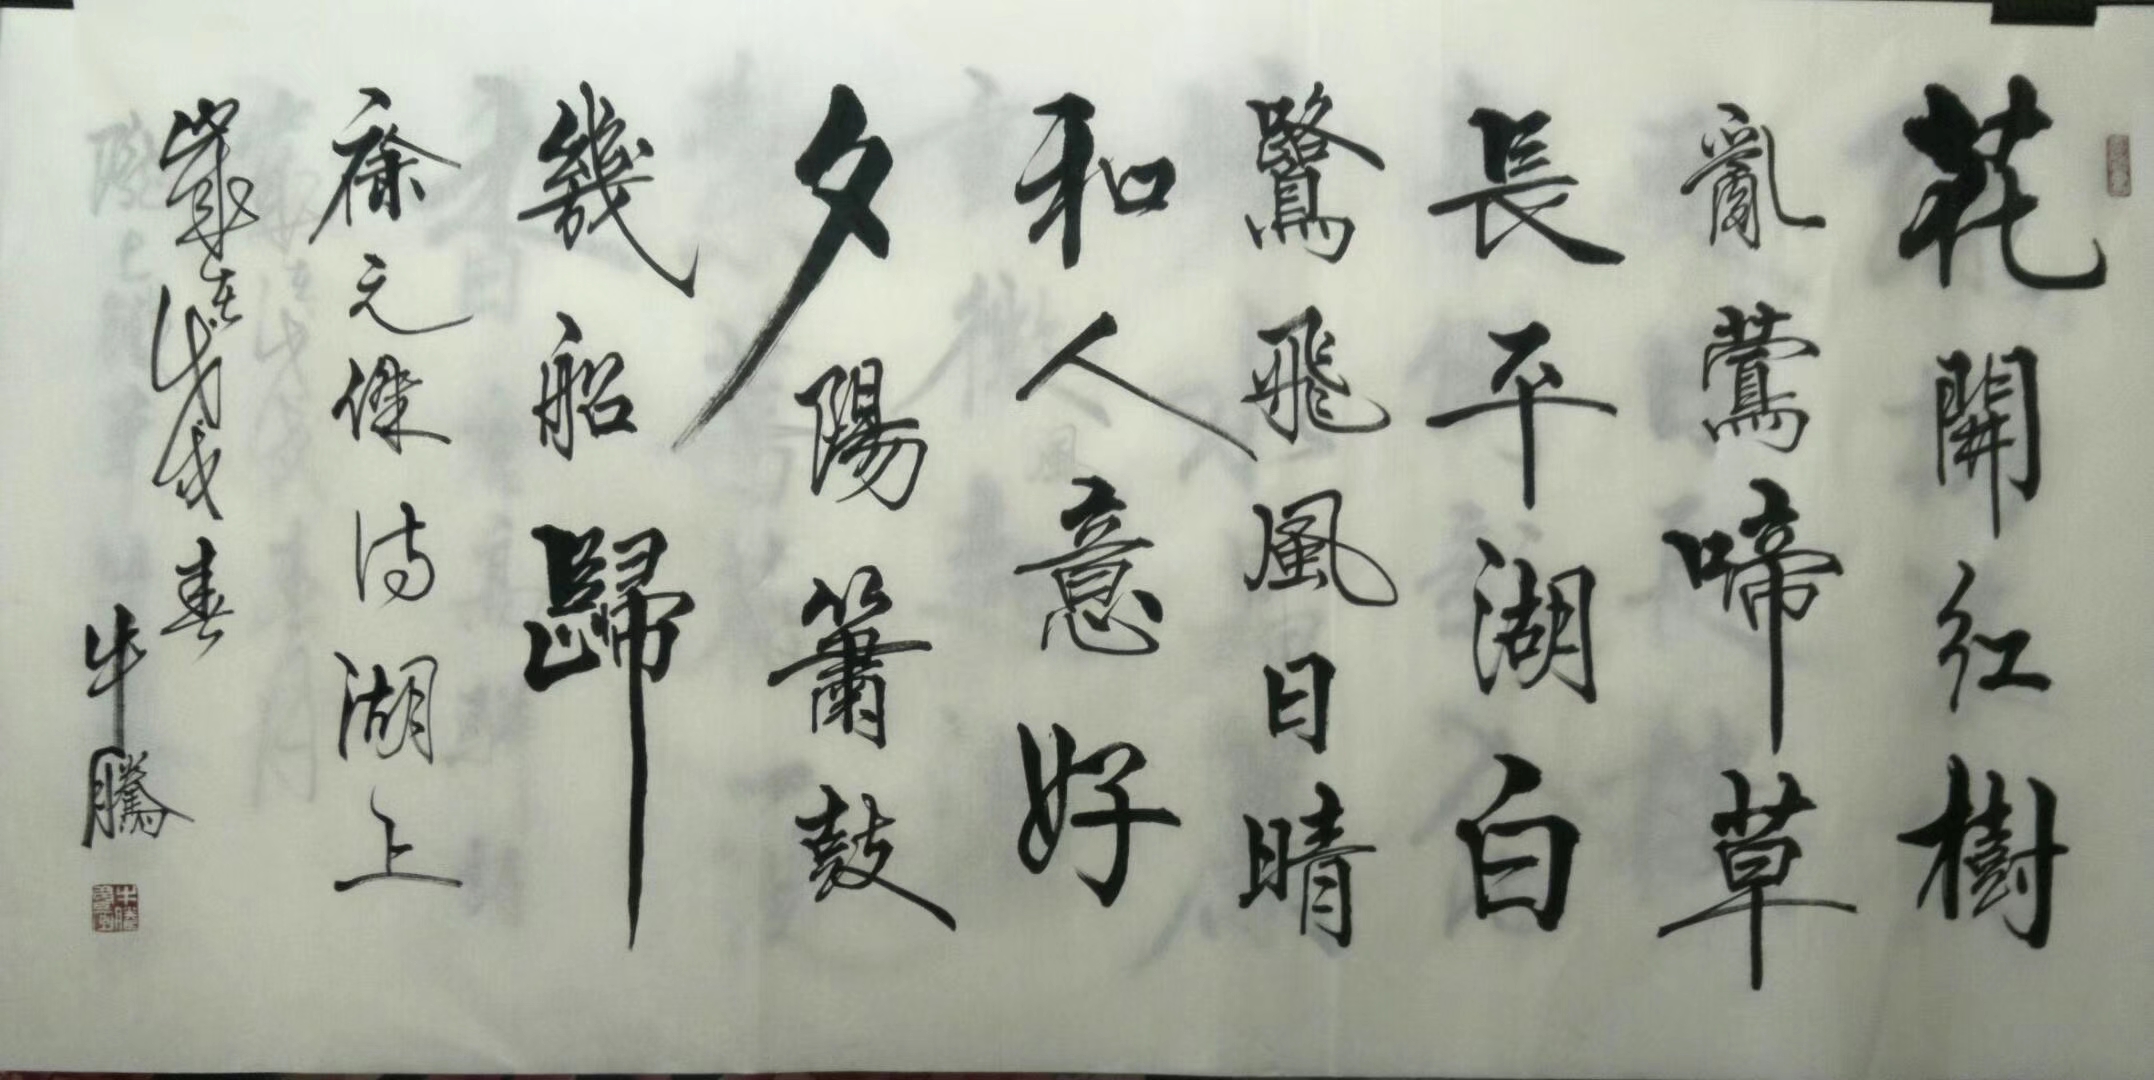 花開紅樹
亂鶯啼草
長平湖白
鷺飛風日晴
和人意好
夕陽簫鼓
幾船歸
徐元傑詩湖上
歲在戊戌春
牛騰
牛騰